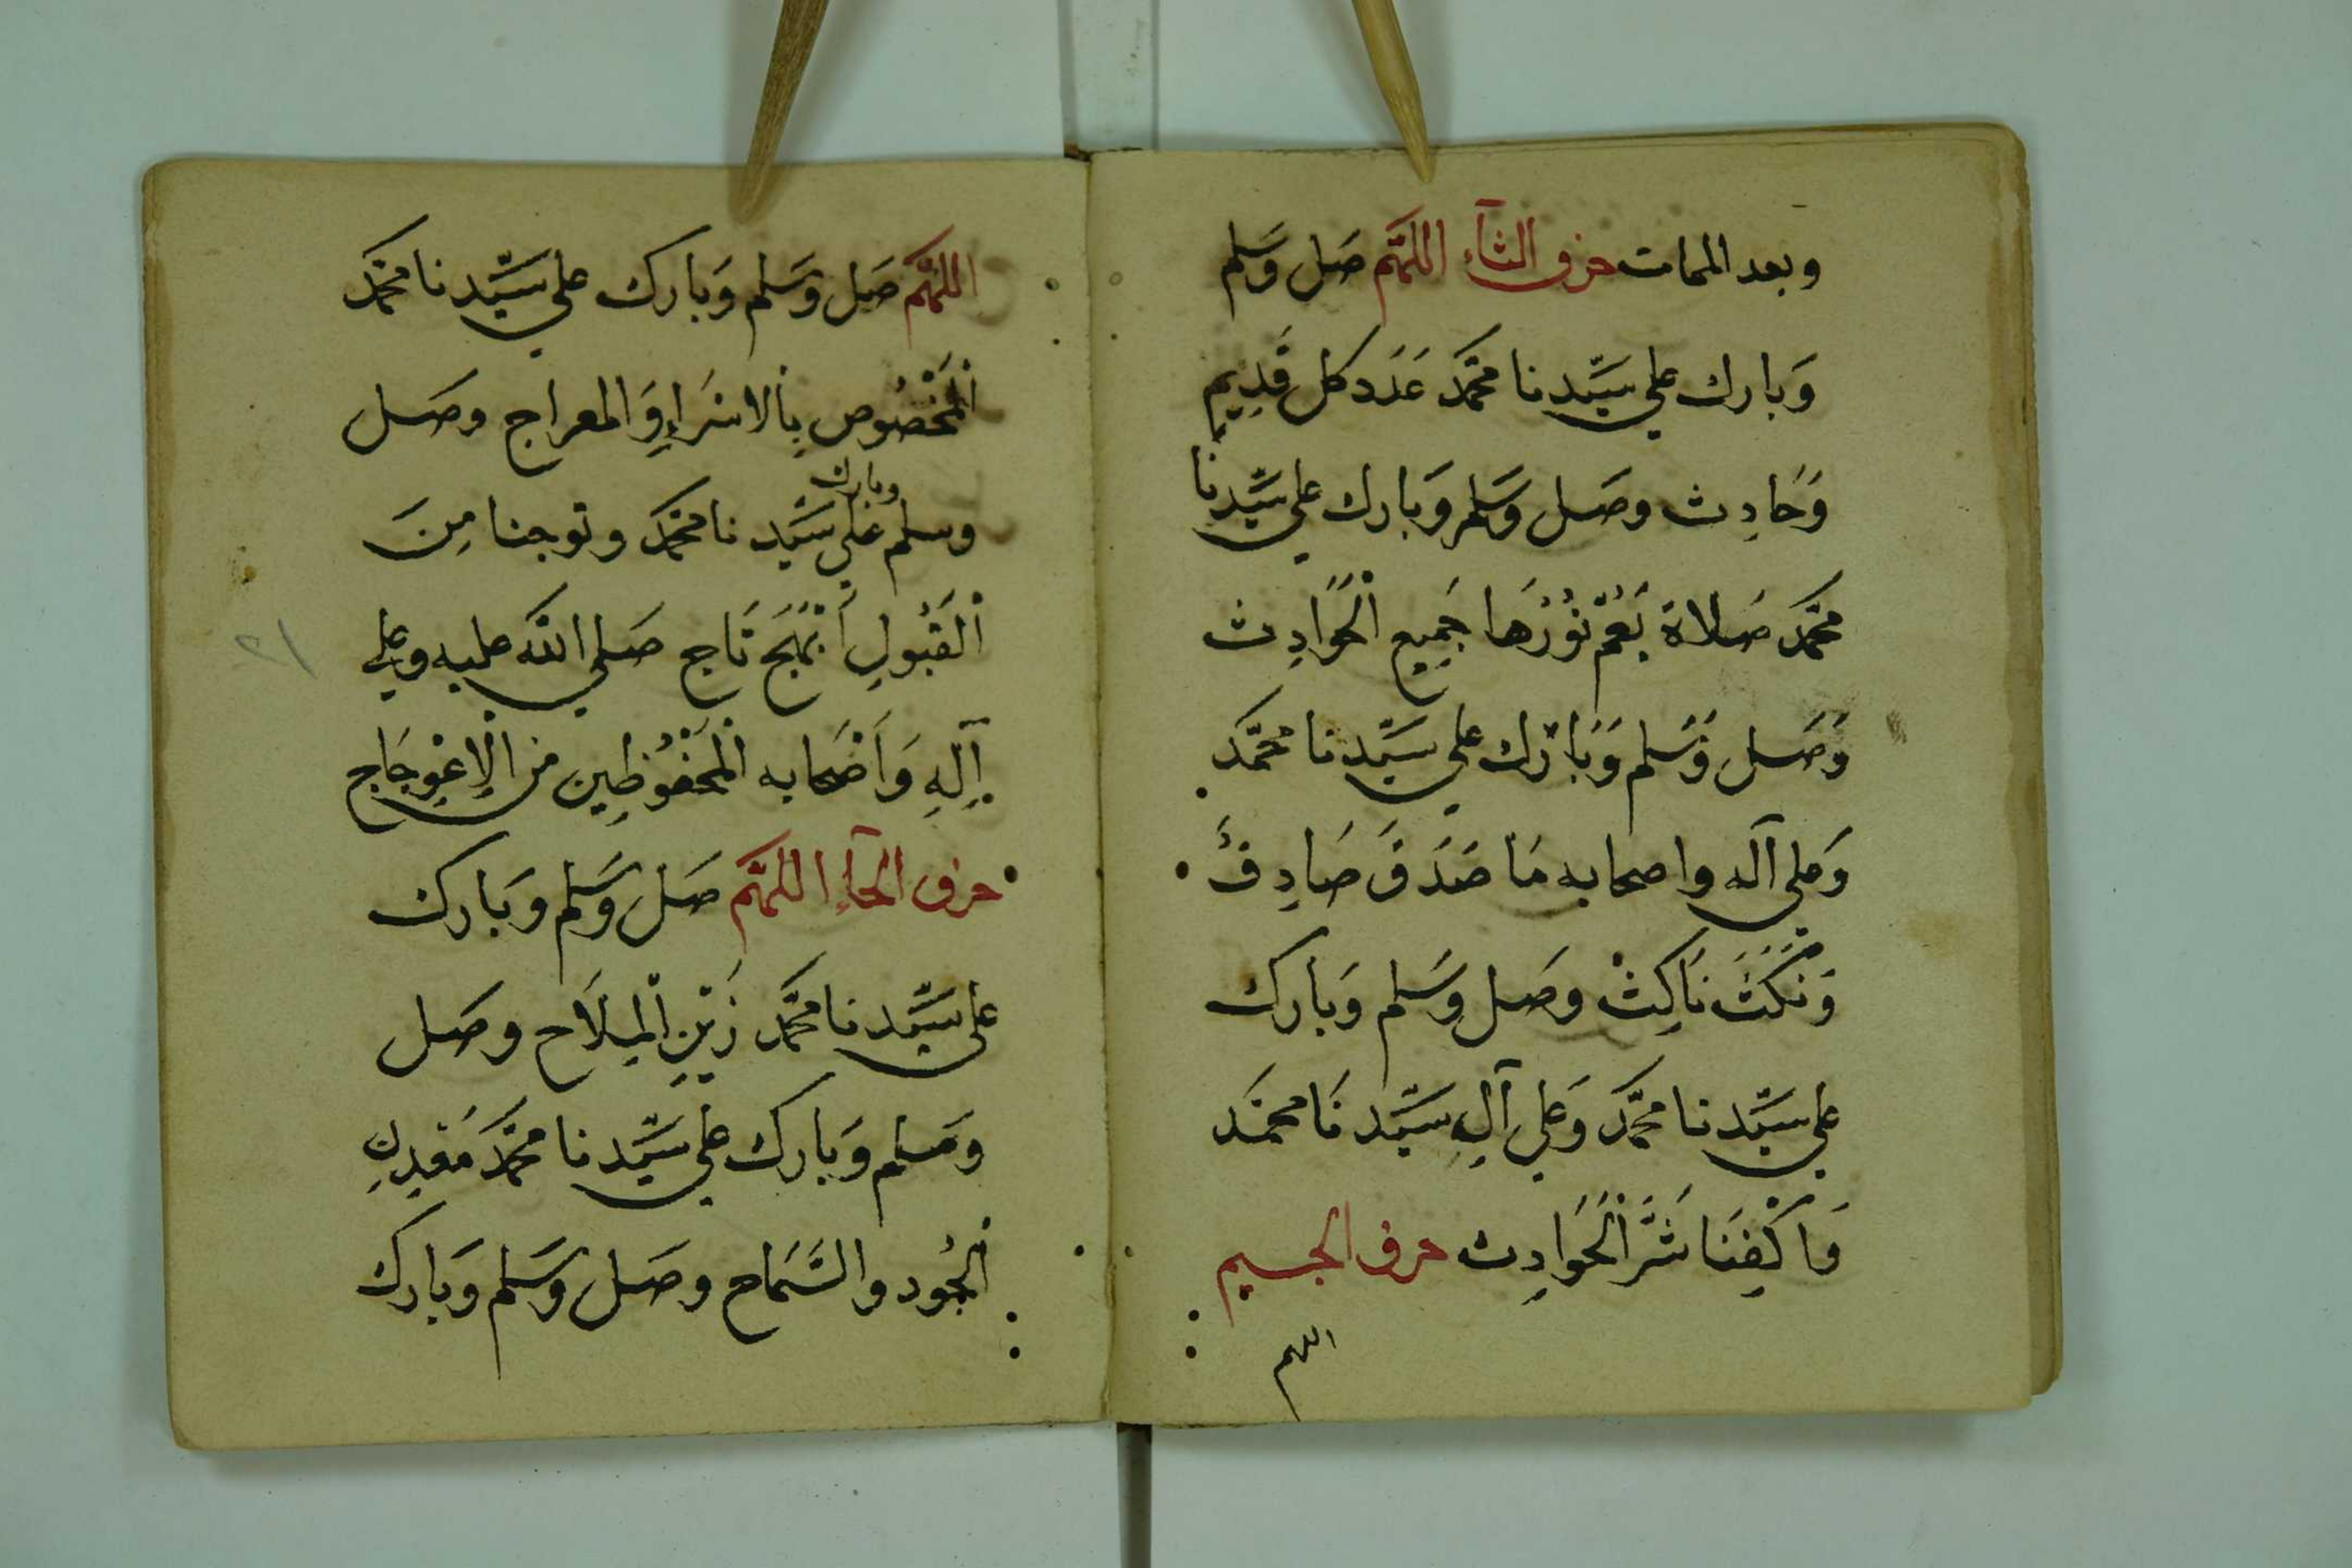 وبعد الممات حرف الثآء اللهم صَل وَسَلم
وَبارك علي سَيّدنا محمّد عَدَد كل قَدِيمٍ
وَحَادِث وصَل وَسَلم وَبَارك علي سَيّدنَا
محمّد صَلاة يَعُمّ نُوْرُهَا جَمِيع الْحَوَادِث
وَصَل وَسَلم وَبَارك علي سَيّدنا محمّد
وَعلي آله واصحابه مَا صَدَقَ صَادِقٌ
وَنَكَثَ نَاكِثْ وصَل وَسَلم وَبَارك
علي سَيّدنا محمّد وَعَلي آلِ سَيّدنَا محمّد
وَاكْفِنَا شَرَّ الْحَوَادِث حرف الجسيم
اللهم
اللهم صَل وَسَلم وَبَارك علي سَيّدنا محمّد
الْمَخْصُوص بِالاسْرَاءِ وَالمعراج وصَل
وبارك
وسلم عَلي سَيّدنا محمّد وتوجنا مِنَ
الْقَبُولِ اَبْهَج تَاج صَلي اللّه عليه وعلي
آلِهِ وَاَصْحَابه الْمَحْفُوظِين من الْاِعْوِجَاج
حرف الحآءِ اللهم صَل وَسَلم وَبَارك
علي سَيّدنا محمّد زَيْنِ الْمِلَاح وصَل
وَسَلم وَبَارك عَلي سَيّدنا محمّد مَعْدِنِ
الْجُود والسَّمَاح وصَل وَسَلم وَبَارك
٢١